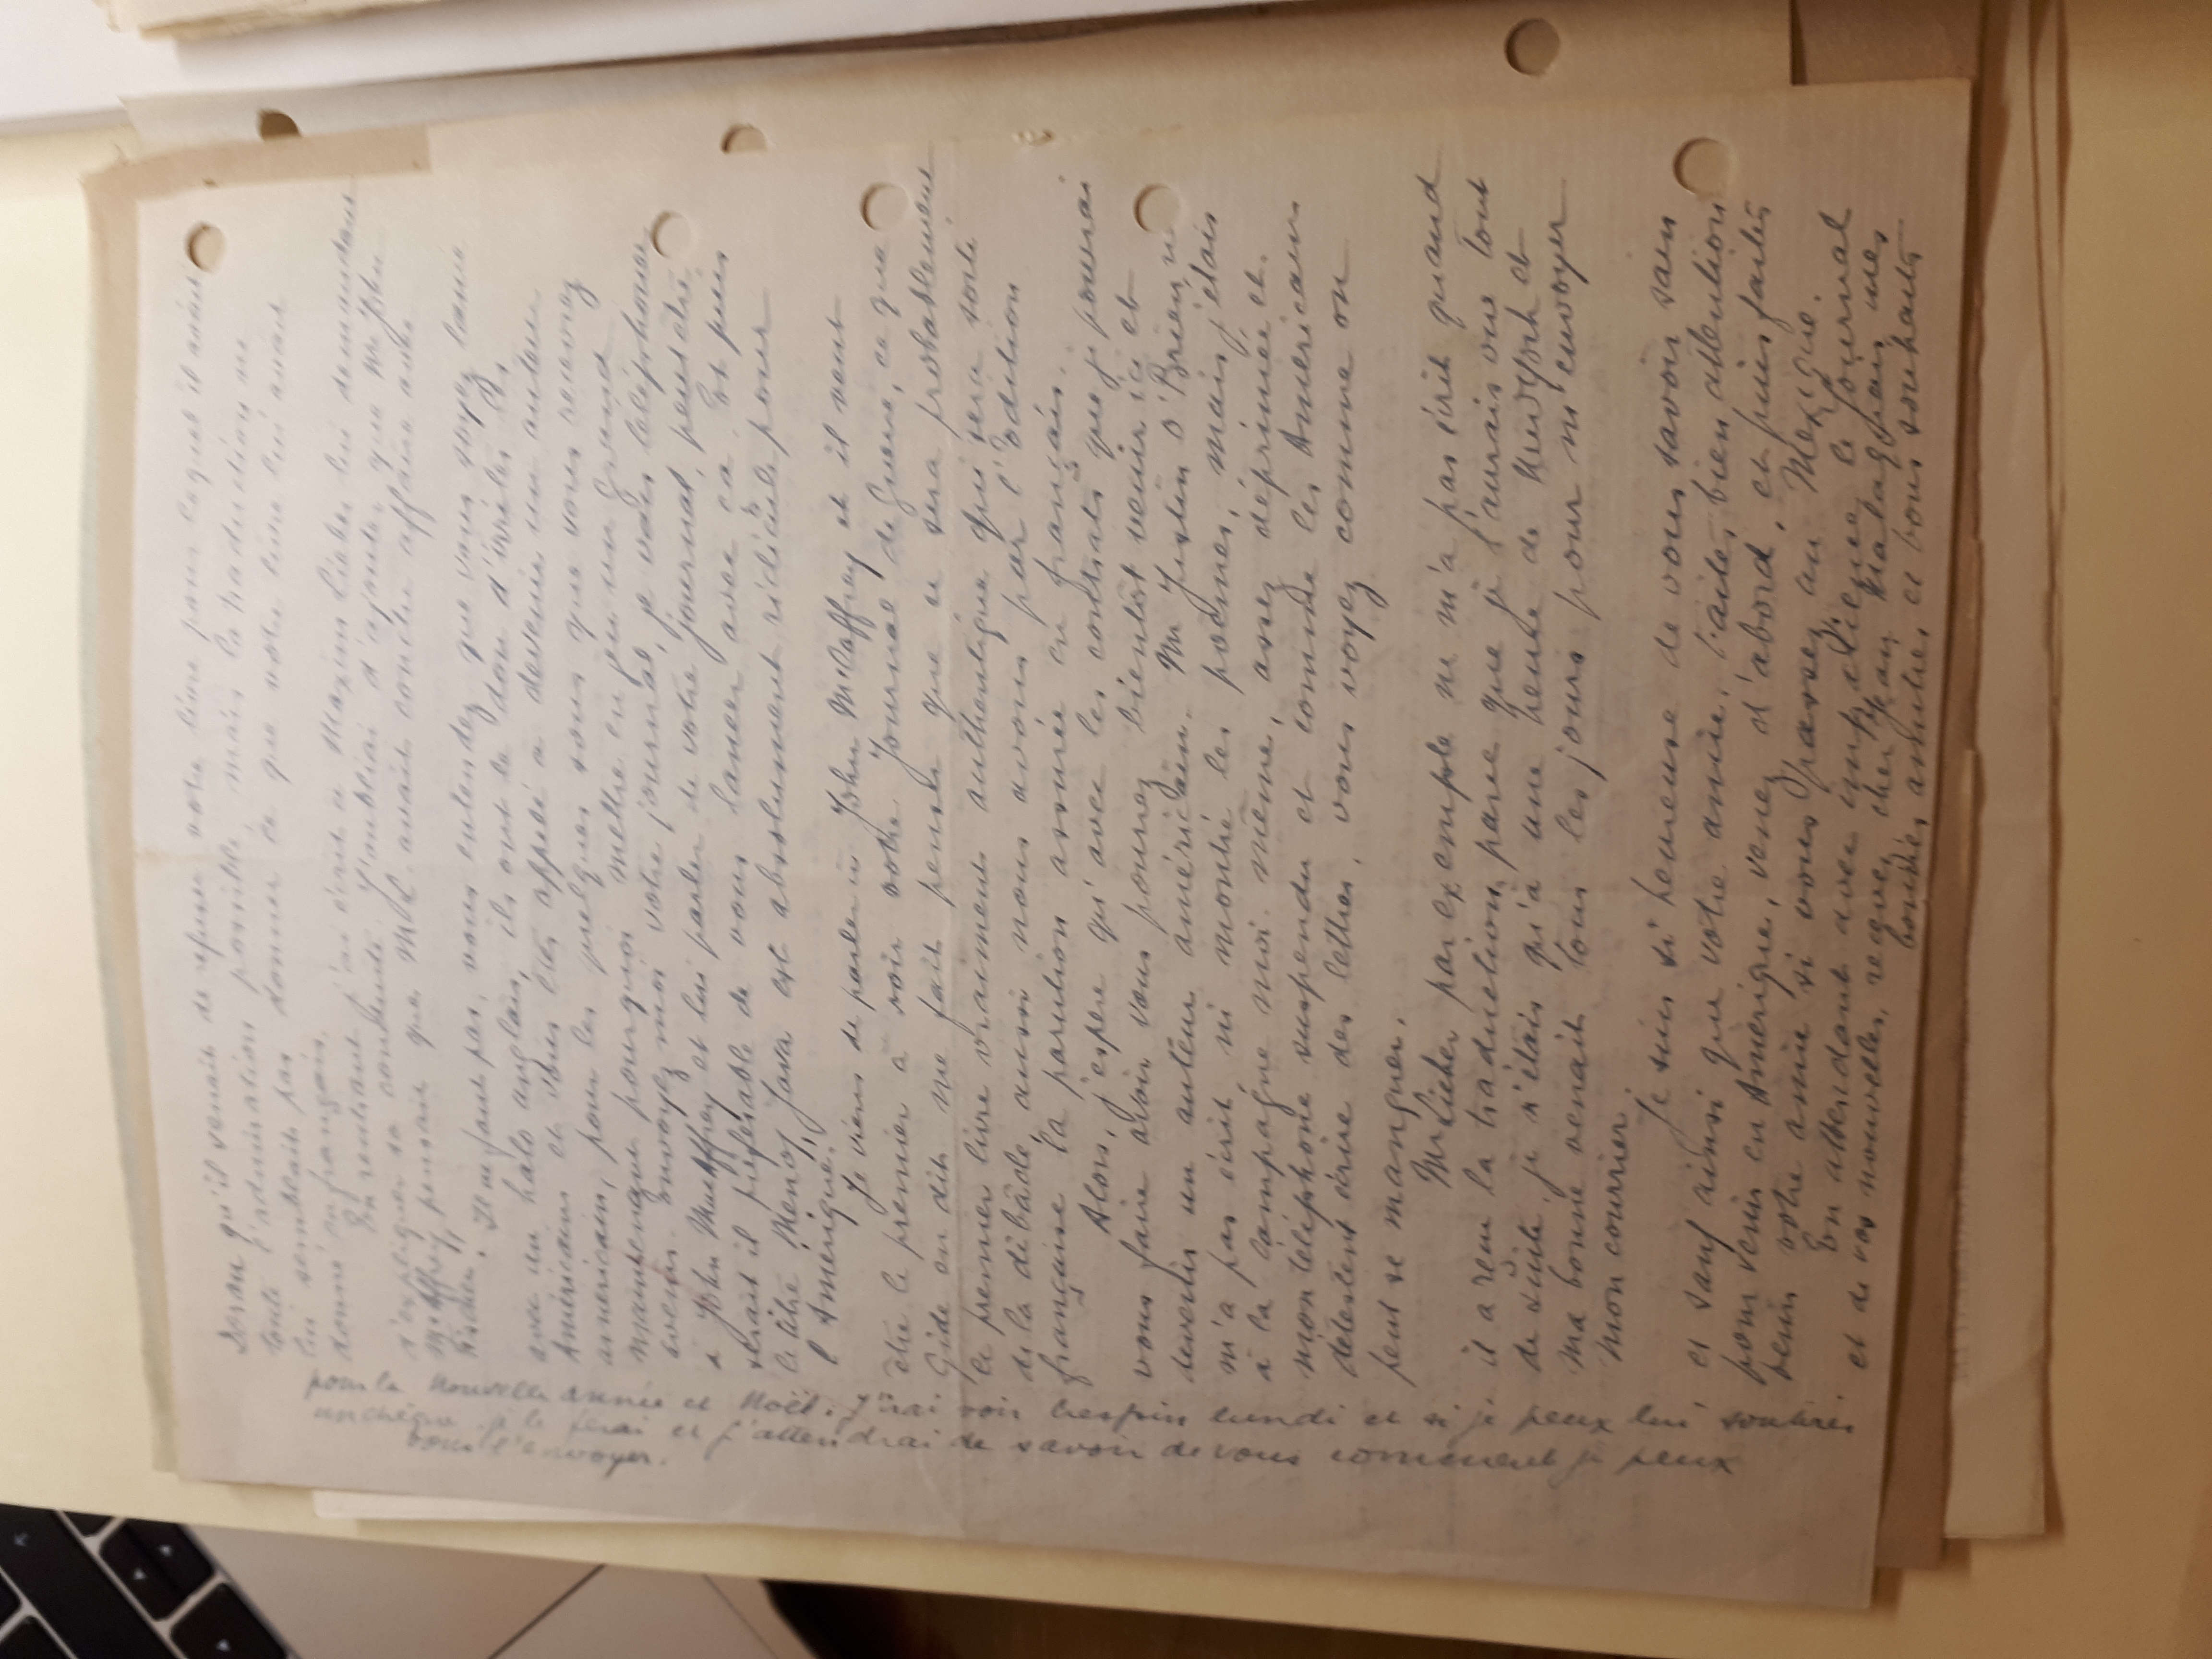 Doran qu'il venait de refuser votre livre pour lequel il avait
toute l'admiration possible mais la traduction ne
lui semblait pas donner ce que votre livre lui avait
donné en français.
En rentrant j'ai écrit à Maxim Lieber lui demandant
d'expliquer sa conduite. J'oubliai d'ajouter que Mr John
McCaffrey pensait que M. L. avait contre affaire autre
Il ne faut pas, vous entendez que vous soyez lancé
avec un halo anglais, ils ont le don d'irriter les
Américains et vous êtes appelé à devenir un auteur
americain, pour les quelques sous que vous recevrez
maintenant pourquoi mettre en jeu un grand
avenir. envoyez moi votre journal, je vais téléphoner
à John McCaffrey et lui parler de votre journal, peut être
serait il préférable de vous lancer avec ça. Et puis
le titre "Men of Java" est absolument ridicule pour
l'Amérique.
Je viens de parler à John McCaffrey et il veut
être le premier à voir votre Journal de Guerre, ce que
Gide en dit me fait penser que ce sera probablement
le premier livre vraiment authentique qui sera sorti
de la débâcle aussi nous avons pour l'édition
française la parution assurée en français.
Alors, j'espère qu'avec les contrats que je pourrai
vous faire avoir vous pourrez bientôt venir ici et
devenir un auteur américain. Mr Justin O'Brien ne
m'a pas écrit ni montré les poèmes, mais j'étais
à la campagne moi-même, assez déprimée et
mon téléphone suspendu et comme les Américains
détestent écrire des lettres, vous voyez comme on
peut se manquer.
Mr Lieber par exemple ne m'a pas écrit quand
il a reçu la traduction, parce que je l'aurais vue tout
de suite, je n'étais qu'à une heure de New York et
ma bonne venait tous les jours pour m'envoyer
mon courrier.
Je suis si heureuse de vous savoir sain
et sauf ainsi que votre amie, faites bien attention
pour venir en Amérique, venez d'abord, et puis faites
venir votre amie si vous passez au Mexique.
En attendant avec impatience le Journal
et de vos nouvelles, recevez cher Jean Malaquais mes
bonnes amitiés et bons souhaits
pour la Nouvelle année et Noël. J'irai voir Crespin lundi et si je peux lui soutirer
un chèque je le ferai et j'attendrai de savoir de vous comment je peux
vous l'envoyer.